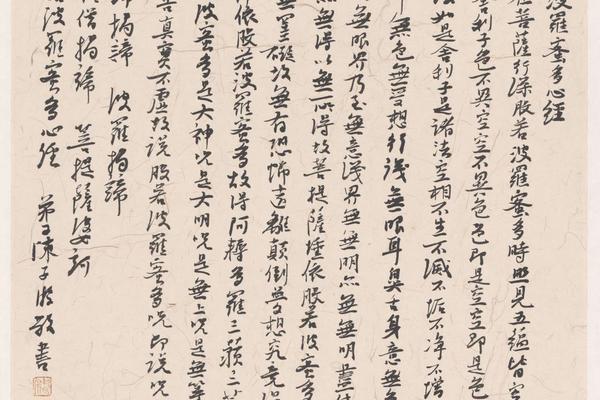 波羅蜜多心經
在菩薩行深般若波羅蜜多時照見五蘊皆空
舍利子色不異空空不異色色即是空空即是色
如是舍利子是諸法空相不生不滅不垢不净不增
中無色無受想行識無眼耳鼻舌身意無色
無眼界乃至無意識界無無明亦無無明盡
無得以無所得故菩提薩埵依般若波羅蜜多
無罣礙故無有恐怖遠離顛倒夢想究竟
依般若波羅蜜多故得阿耨多羅三藐三菩
波羅蜜多是大神咒是大明咒是無上咒是無等
苦真實不虛故說般若波羅蜜多咒即說咒
諦揭諦 波羅揭諦
僧揭諦 菩提薩婆訶
波羅蜜多心經 弟子陳子敬書